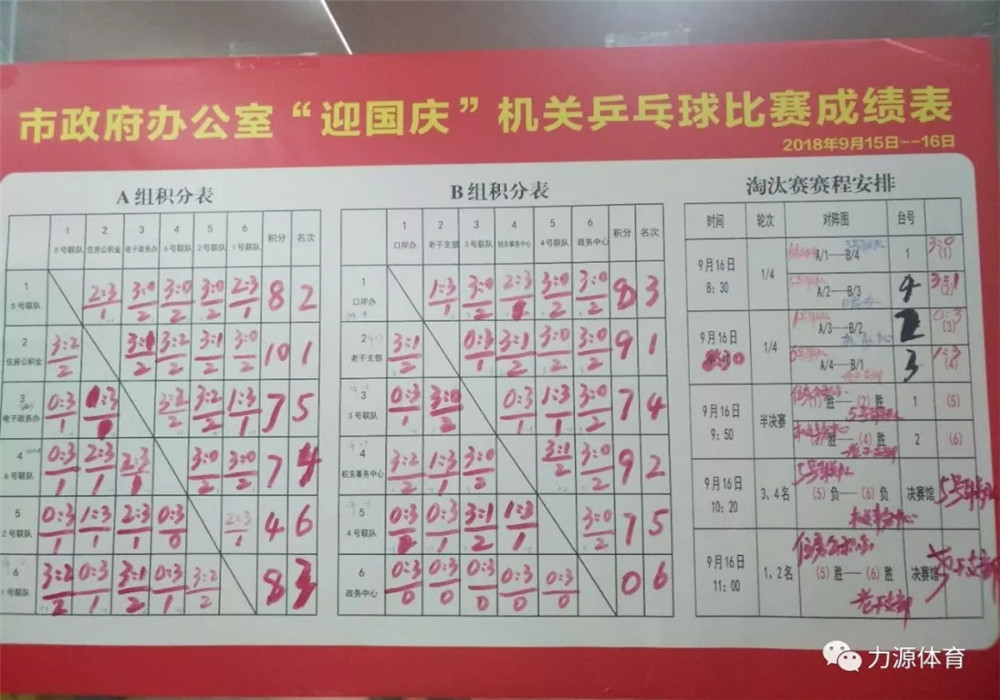 市政府办公室“迎国庆”机关乒乓球比赛成绩表
2018年9月15日--16日
A组积分表
1 2 3 4 5 6 积分 名次
5号联队 住房公积金 电子政务办 6号联队 2号联队 1号联队
1 5号联队 2:3/1 3:0/2 3:0/2 3:0/2 2:3/1 8 2
2 住房公积金 3:2/2 3:1/2 3:2/2 3:1/2 3:0/2 10 1
3 电子政务办 0:3/1 1:3 3:2/2 1:3/1 7 5
4 6号联队 0:3/1 2:3/1 2:3/1 3:0/2 3:0/2 7 4
5 2号联队 0:3/1 1:3/1 2:3/1 0:3/0 4 6
6 1号联队 3:2/2 0:3/1 3:1/2 0:3/1 3:2/2 8 3
B组积分表
1 2 3 4 5 6 积分 名次
口岸办 老干支部 3号联队 机关事务中心 4号联队 政务中心
1 口岸办 1:3/1 3:0/2 2:3 3:0/2 3:0/2 8 3
2 老干支部 3:1/2 3:1/2 3:0/2 3:0/2 9 1
3 3号联队 0:3/1 0:3/1 1:3/1 3:0/2 7 4
4 机关事务中心 3:2/2 1:3/1 3:0/2 3:1/2 3:0/2 9 2
5 4号联队 0:3 0:3/1 3:1/2 1:3/1 3:0/2 7 5
6 政务中心 0:3/0 0:3/0 0:3/0 0:3/0 0:3/0 0 6
淘汰赛赛程安排
时间 轮次 对阵图 台号
9月16日 8:30 1/4 A/1—B/4 1 3:0 (1)
A/2—B/3 4 3:1 (2)
9月16日 1/4 A/3—B/2 2 0:3 (3)
A/4—B/1 3 1:3 (4)
9月16日 9:50 半决赛 (1)胜—(2)胜 1 (5)
5号联队
(4)胜 2 (6)
老干支部
9月16日 10:20 3、4名 5号联队 (5)负—(6)负 决赛馆 5号联队
机关事务中心
9月16日 11:00 1、2名 住房公积金 (5)胜—(6)胜 决赛馆 老干支部
老干支部
力源体育